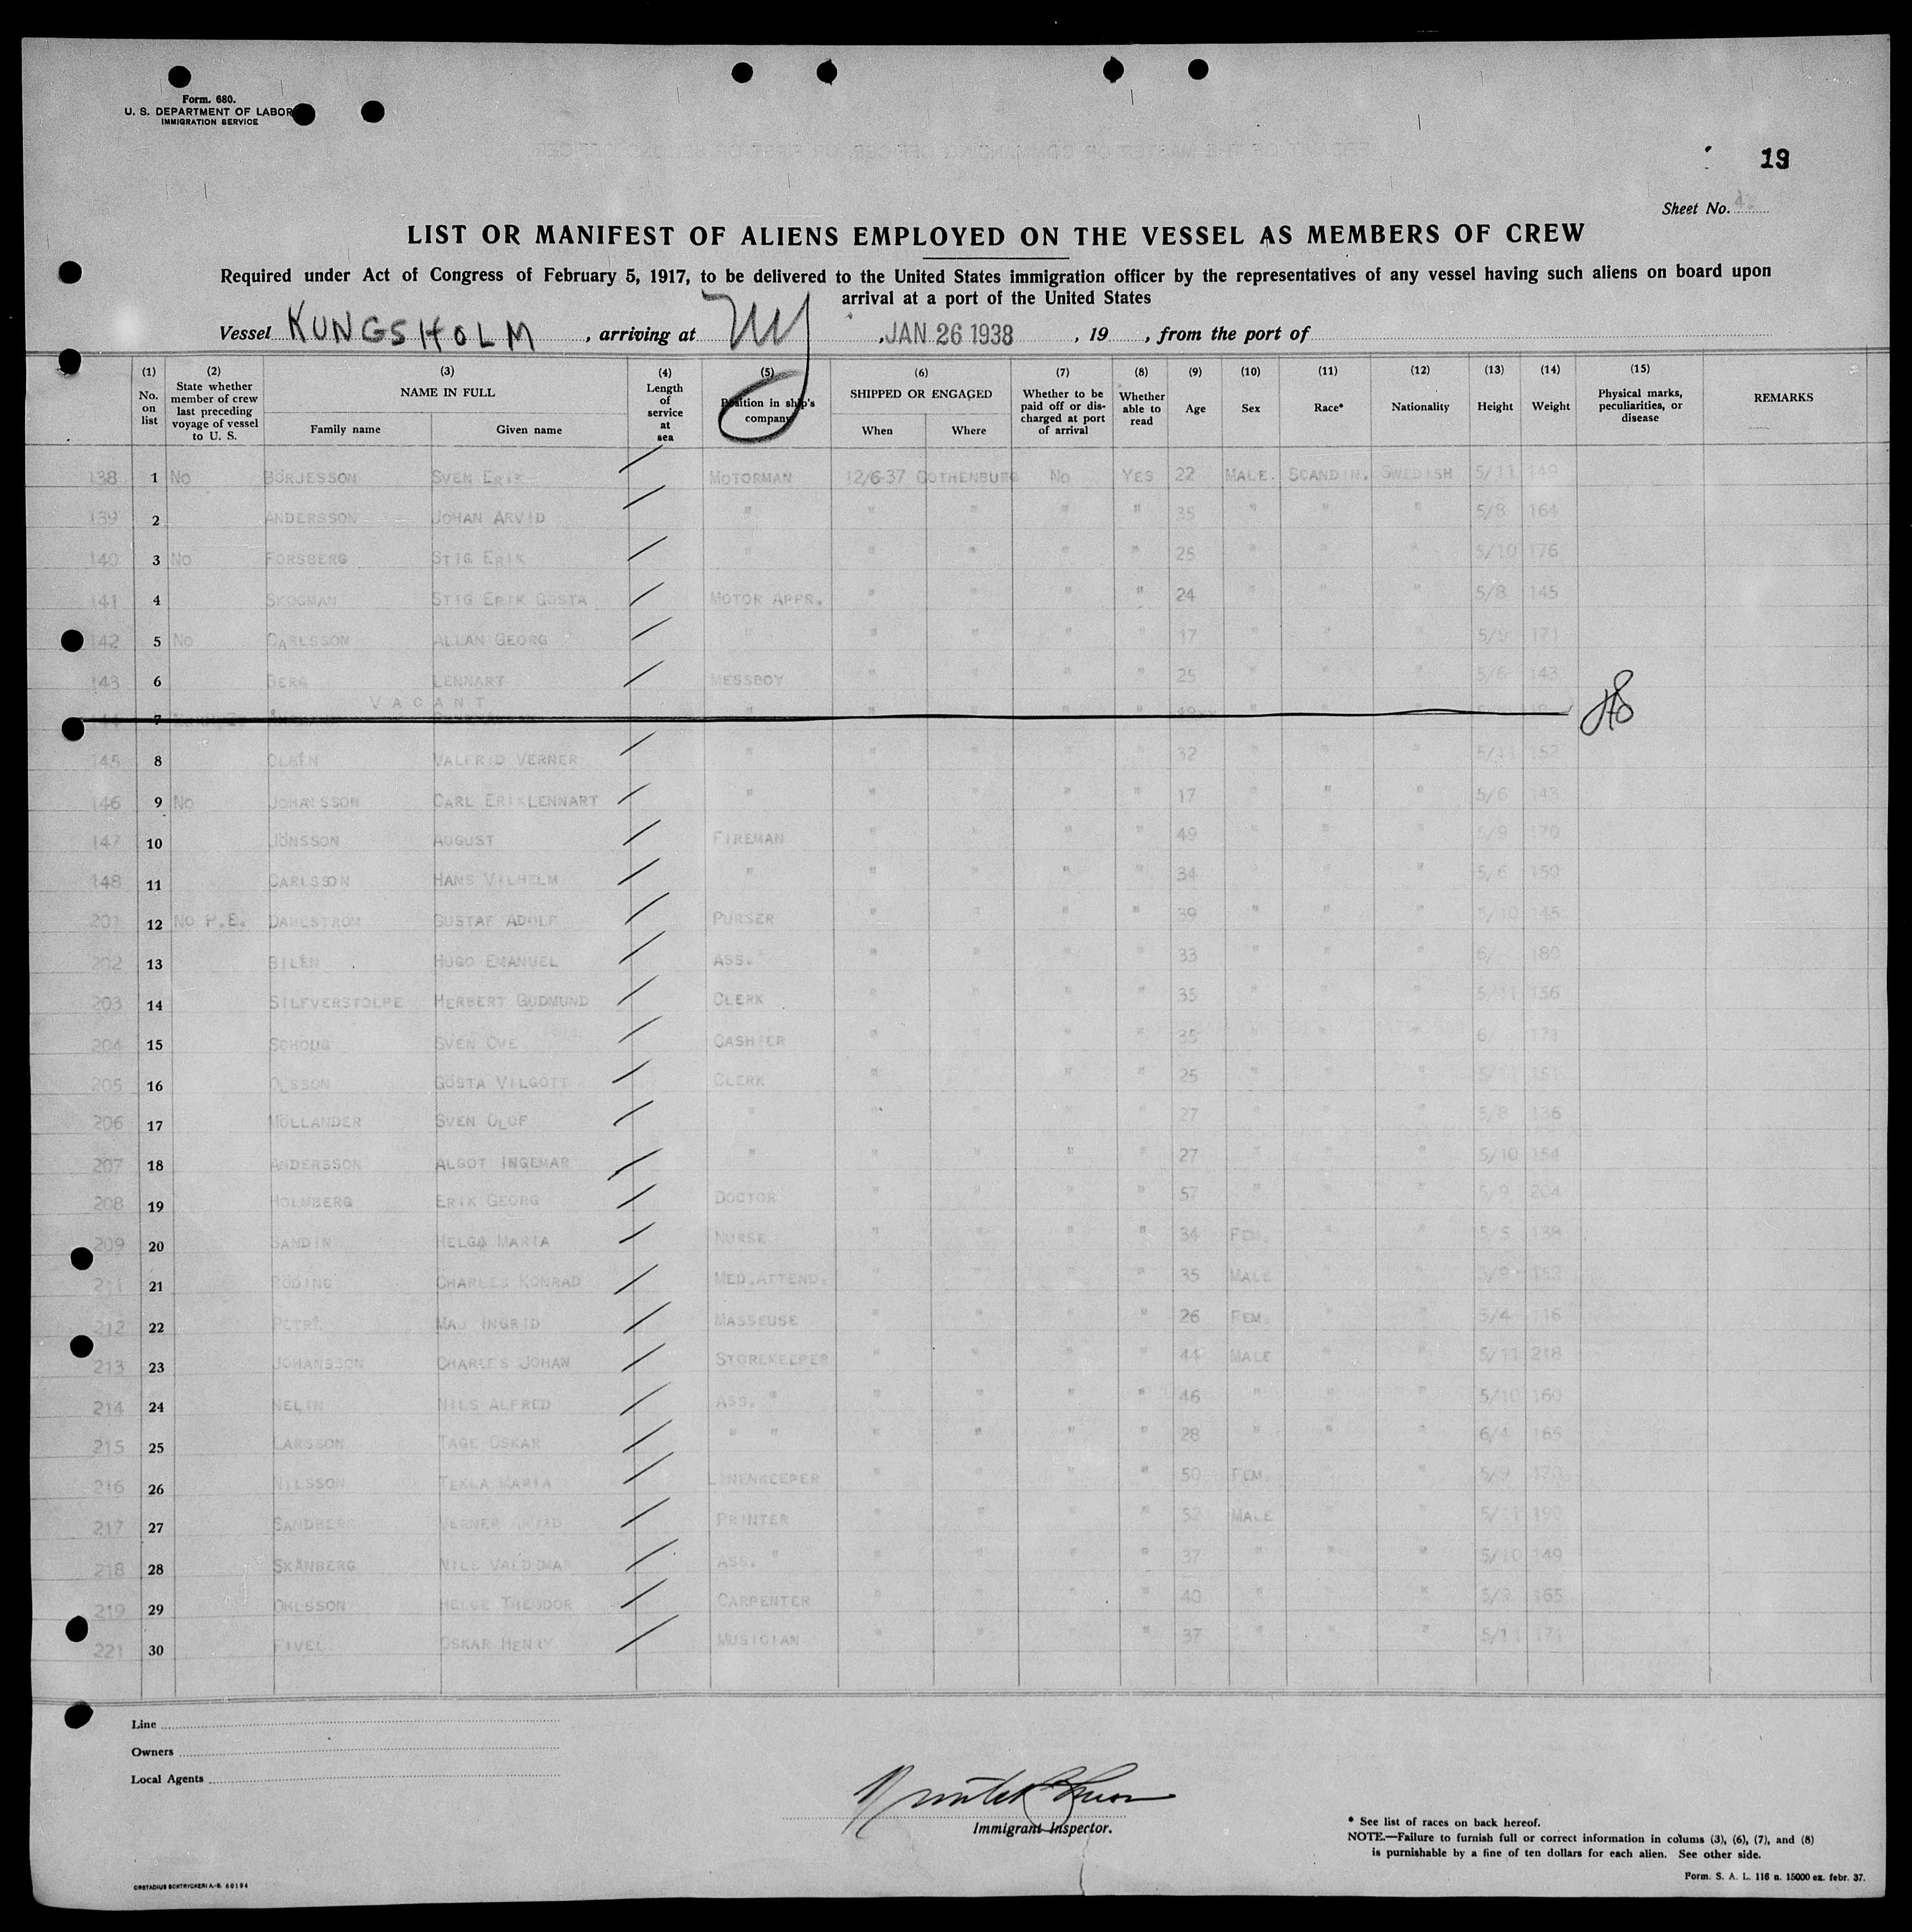 Form. 680.
U. S. DEPARTMENT OF LABOR
IMMIGRATION SERVICE
19
Sheet No.
LIST OR MANIFEST OF ALIENS EMPLOYED ON THE VESSEL AS MEMBERS OF CREW
Required under Act of Congress of February 5, 1917, to be delivered to the United States immigration officer by the representatives of any vessel having such aliens on board upon
arrival at a port of the United States
Vessel KUNGSHOLM , arriving at NY , JAN 26 1938 , 19 , from the port of
(1) No. on list (2) State whether member of crew last preceding voyage of vessel to U. S. (3) NAME IN FULL Family name Given name (4) Length of service at sea (5) Position in ship's company (6) SHIPPED OR ENGAGED When Where (7) Whether to be paid off or discharged at port of arrival (8) Whether able to read (9) Age (10) Sex (11) Race* (12) Nationality (13) Height (14) Weight (15) Physical marks, peculiarities, or disease REMARKS
138 1 No BÖRJESSON SVEN ERIK MOTORMAN 12/6-37 GOTHENBURG No YES 22 MALE. SCANDIN. SWEDISH 5/11 149
139 2 ANDERSSON JOHAN ARVID " " " " " 35 " " " 5/8 164
140 3 No FORSBERG STIG ERIK " " " " " 25 " " " 5/10 176
141 4 SKOGMAN STIG ERIK GÖSTA MOTOR APPR. " " " " 24 " " " 5/8 145
142 5 No CARLSSON ALLAN GEORG " " " " " 17 " " " 5/9 171
143 6 BERG LENNART MESSBOY " " " " 25 " " " 5/6 143
VACANT
144 7
145 8 OLSÉN VALFRID VERNER " " " " " 32 " " " 5/11 152
146 9 No JOHANSSON CARL ERIK LENNART " " " " " 17 " " " 5/6 143
147 10 JÖNSSON AUGUST FIREMAN " " " " 49 " " " 5/9 170
148 11 CARLSSON HANS VILHELM " " " " " 34 " " " 5/6 150
201 12 No P.E. DAHLSTRÖM GUSTAF ADOLF PURSER " " " " 39 " " " 5/10 145
202 13 BILÉN HUGO EMANUEL ASS. " " " " " 33 " " " 6/ 180
203 14 SILFVERSTOLPE HERBERT GUDMUND CLERK " " " " 35 " " " 5/11 156
204 15 SCHOUG SVEN OVE CASHIER " " " " 35 " " " 6/ 171
205 16 OLSSON GÖSTA VILGOTT CLERK " " " " 25 " " " 5/11 151
206 17 MÖLLANDER SVEN OLOF " " " " " 27 " " " 5/8 136
207 18 ANDERSSON ALGOT INGEMAR " " " " " 27 " " " 5/10 154
208 19 HOLMBERG ERIK GEORG DOCTOR " " " " 57 " " " 5/9 204
209 20 SANDIN HELGA MARIA NURSE " " " " 34 FEM. " " 5/5
211 21 RÖDING CHARLES KONRAD MED.ATTEND. " " " " 35 MALE " " 5/9 162
212 22 MAJ INGRID MASSEUSE " " " " 26 FEM. " " 5/4 116
213 23 JOHANSSON CHARLES JOHAN STOREKEEPER " " " " 44 MALE " " 5/11 218
214 24 NELIN NILS ALFRED ASS. " " " " " 46 " " " 5/10 160
215 25 LARSSON TAGE OSKAR " " " " " " 28 " " " 6/4 165
216 26 NILSSON TEKLA MARIA LINENKEEPER " " " " 50 FEM. " " 5/9 170
217 27 SANDBERG VERNER ARVID PRINTER " " " " 52 MALE " " 5/11 190
218 28 SKÅNBERG NILS VALDEMAR ASS. " " " " " 37 " " " 5/10 149
219 29 OHLSSON HELGE THEODOR CARPENTER " " " " 40 " " " 5/9 165
221 30 FIVEL OSKAR HENRY MUSICIAN " " " " 37 " " " 5/11 171
Line
Owners
Local Agents
Immigrant Inspector.
* See list of races on back hereof.
NOTE.—Failure to furnish full or correct information in colums (3), (6), (7), and (8)
is purnishable by a fine of ten dollars for each alien. See other side.
ORSTADIUS BOKTRYCKERI A.-B. 60194
Form. S. A. L. 116 n. 15000 ex. febr. 37.